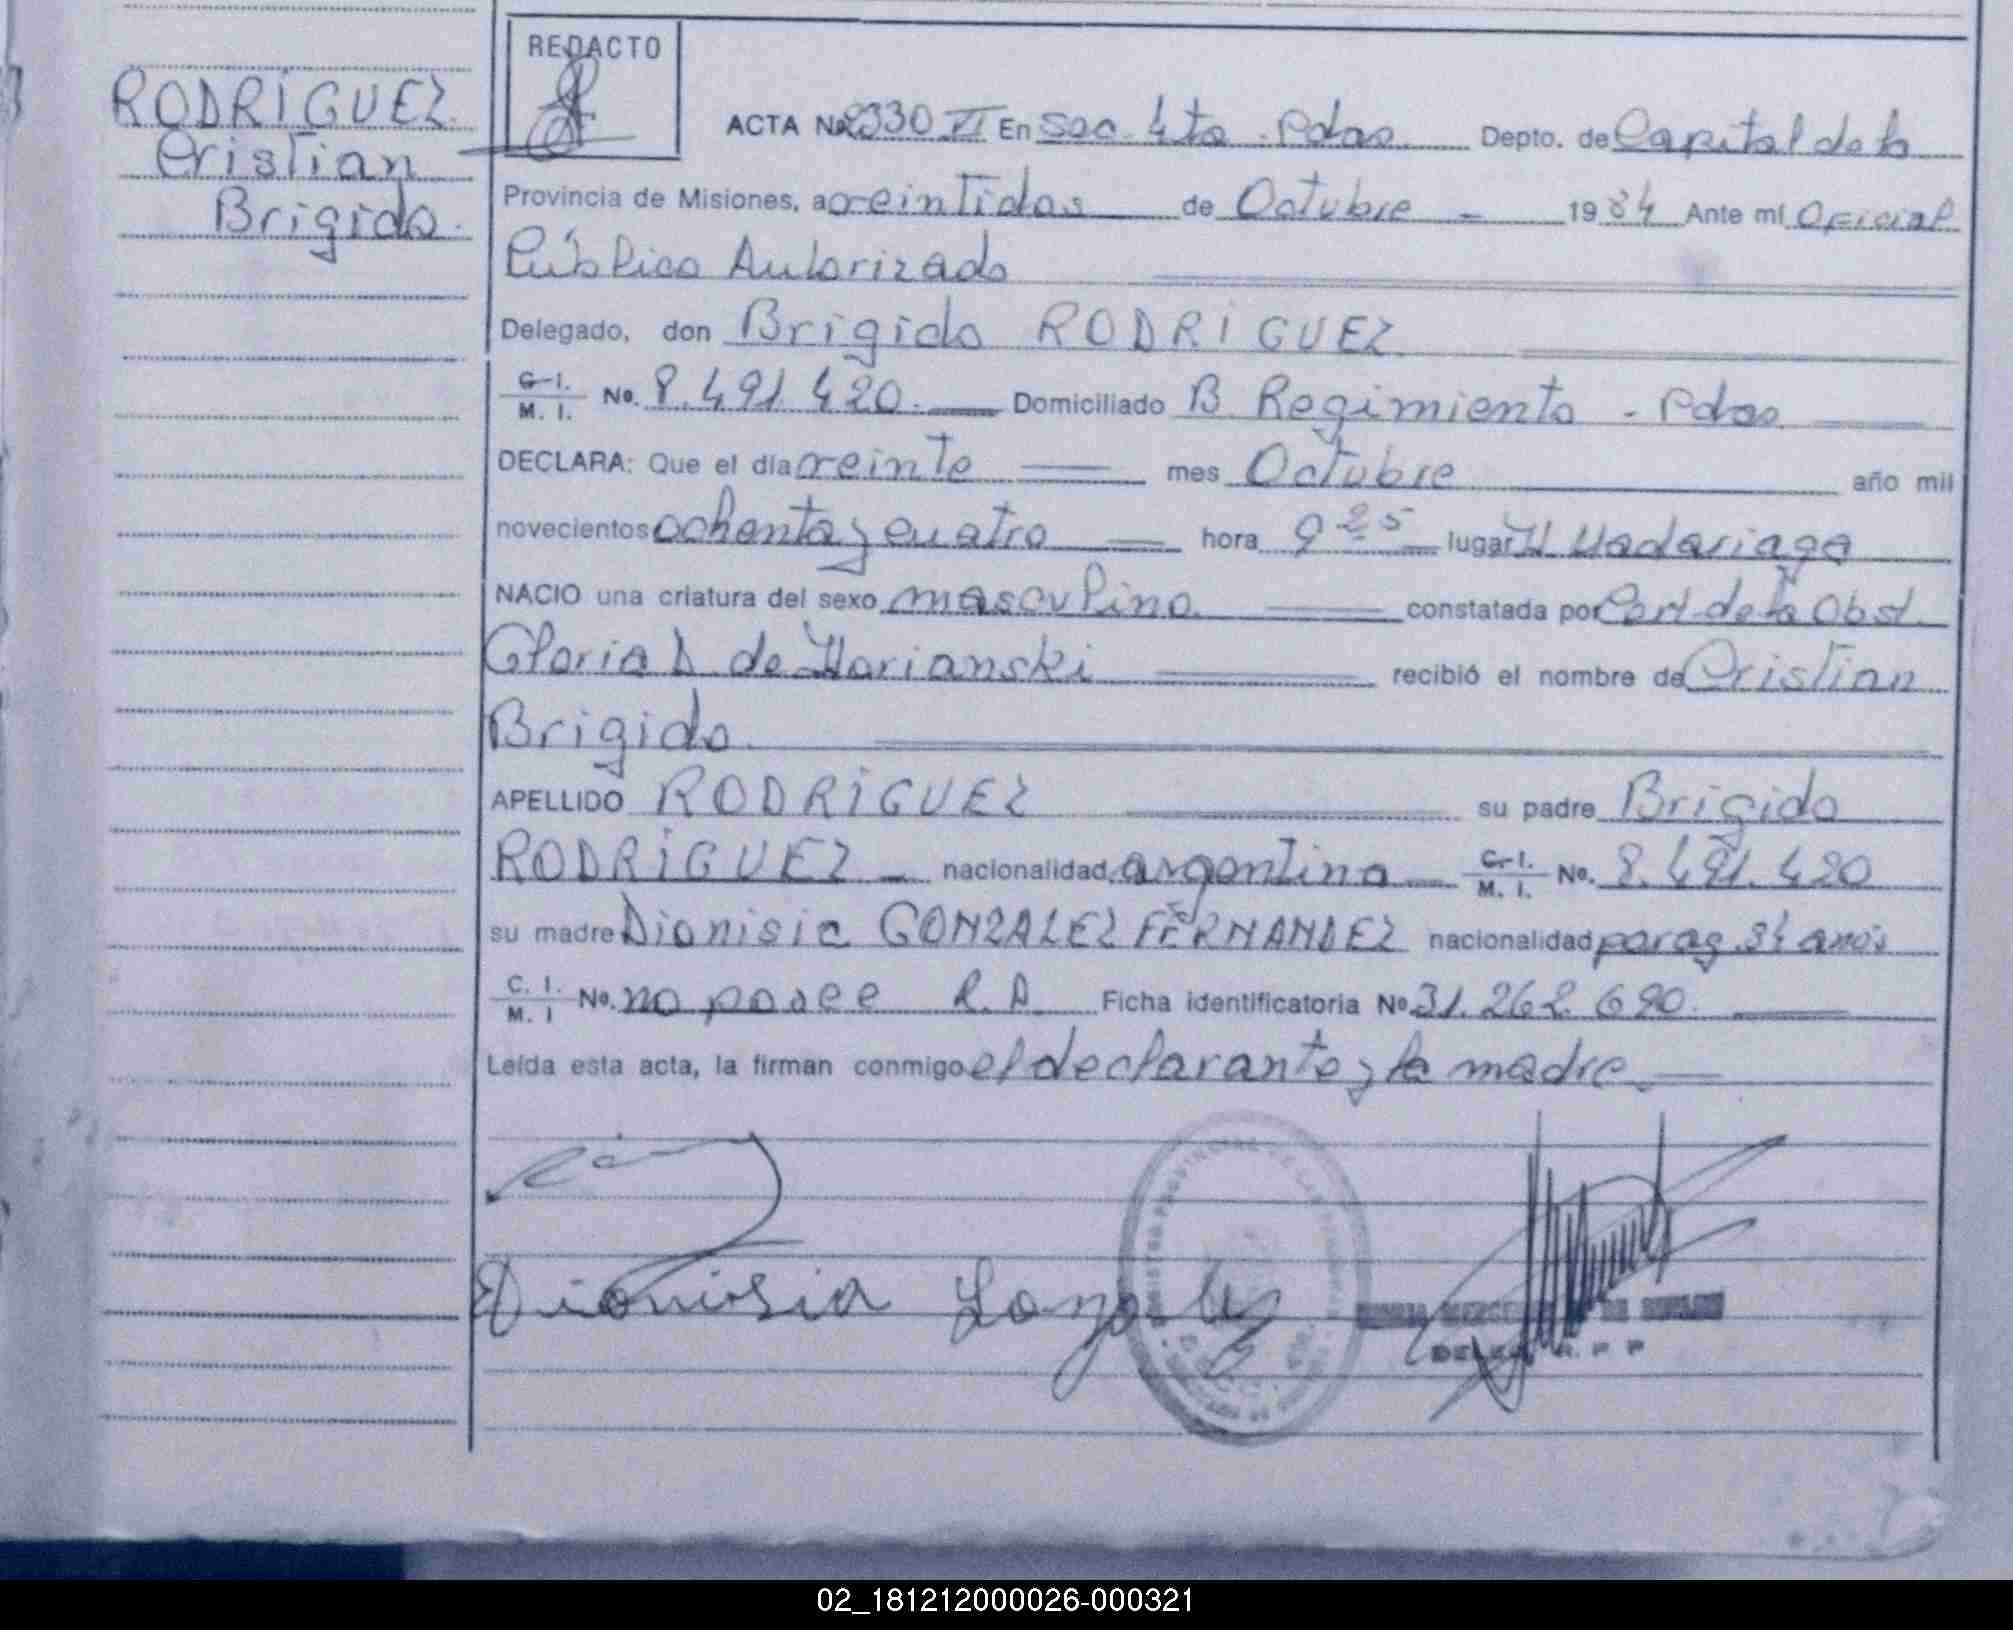 RODRÍGUEZ
Cristian
Brigido.
REDACTO
ACTA No. 2330 VI En Sec. 4ta. Pdas. Depto. de Capital de la
Provincia de Misiones, a veintidos de Octubre - 1984 Ante mí Oficial
Público Autorizado
Delegado, don Brigido RODRÍGUEZ
C. I. M. I. No. 8.491.420. Domiciliado B. Regimiento - Pdas
DECLARA: Que el día veinte mes Octubre año mil
novecientos ochenta y cuatro hora 9 25 lugar H Madariaga
NACIO una criatura del sexo masculino. constatada por Cert de la Obst.
Gloria D de Marianski recibió el nombre de Cristian
Brigido.
APELLIDO RODRÍGUEZ su padre Brigido
RODRÍGUEZ - nacionalidad argentina C. I. M. I. No. 8.491.420
su madre Dionisia GONZALEZ FERNANDEZ nacionalidad parag 34 años
C. I. M. I No. no posee R.A. Ficha identificatoria No 31.262.690.
Leída esta acta, la firman conmigo el declarante y la madre.
Dionisia Gonzalez
DELEG. R. P. P
02_181212000026-000321